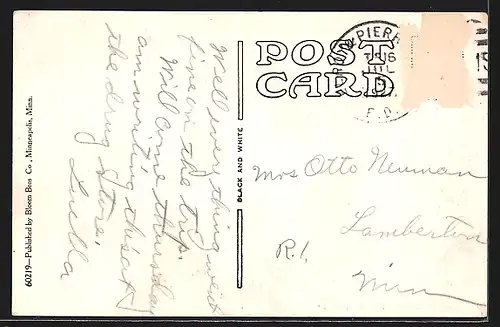 60219—Published by Bloom Bros Co., Minneapolis, Minn.
Well everything went
fine on the trip.
Will come Thursday
am writing this at
the drug store.
Luella
BLACK AND WHITE
POST
CARD
PIERR
Mrs Otto Neuman
Lamberton
R.1.
Minn